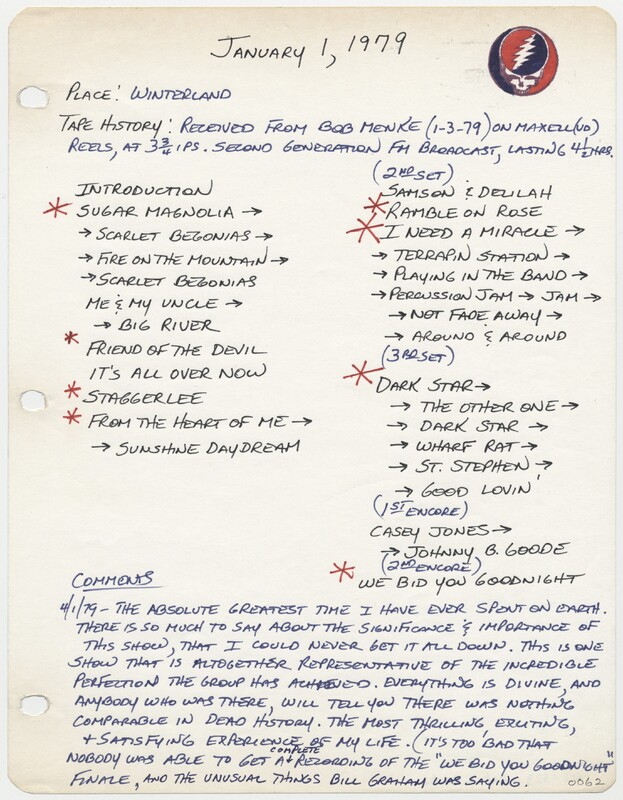 JANUARY 1, 1979
PLACE: WINTERLAND
TAPE HISTORY: RECEIVED FROM BOB MENKE (1-3-79) ON MAXELL (UD)
REELS, AT 3 3/4 IPS. SECOND GENERATION FM BROADCAST, LASTING 4 1/2 HRS.
INTRODUCTION
* SUGAR MAGNOLIA →
→ SCARLET BEGONIAS →
→ FIRE ON THE MOUNTAIN →
→ SCARLET BEGONIAS
ME & MY UNCLE →
→ BIG RIVER
* FRIEND OF THE DEVIL
IT'S ALL OVER NOW
* STAGGERLEE
* FROM THE HEART OF ME →
→ SUNSHINE DAYDREAM
(2ND SET)
SAMSON & DELILAH
* RAMBLE ON ROSE
* I NEED A MIRACLE →
→ TERRAPIN STATION →
→ PLAYING IN THE BAND →
→ PERCUSSION JAM → JAM →
→ NOT FADE AWAY →
→ AROUND & AROUND
(3RD SET)
* DARK STAR →
→ THE OTHER ONE →
→ DARK STAR →
→ WHARF RAT →
→ ST. STEPHEN →
→ GOOD LOVIN'
(1ST ENCORE)
CASEY JONES →
→ JOHNNY B. GOODE
(2ND ENCORE)
* WE BID YOU GOODNIGHT
COMMENTS
4/1/79 - THE ABSOLUTE GREATEST TIME I HAVE EVER SPENT ON EARTH.
THERE IS SO MUCH TO SAY ABOUT THE SIGNIFICANCE & IMPORTANCE OF
THIS SHOW, THAT I COULD NEVER GET IT ALL DOWN. THIS IS ONE
SHOW THAT IS ALTOGETHER REPRESENTATIVE OF THE INCREDIBLE
PERFECTION THE GROUP HAS ACHIEVED. EVERYTHING IS DIVINE, AND
ANYBODY WHO WAS THERE, WILL TELL YOU THERE WAS NOTHING
COMPARABLE IN DEAD HISTORY. THE MOST THRILLING, EXCITING,
+ SATISFYING EXPERIENCE OF MY LIFE. (IT'S TOO BAD THAT
NOBODY WAS ABLE TO GET A COMPLETE RECORDING OF THE "WE BID YOU GOODNIGHT"
FINALE, AND THE UNUSUAL THINGS BILL GRAHAM WAS SAYING.
0062